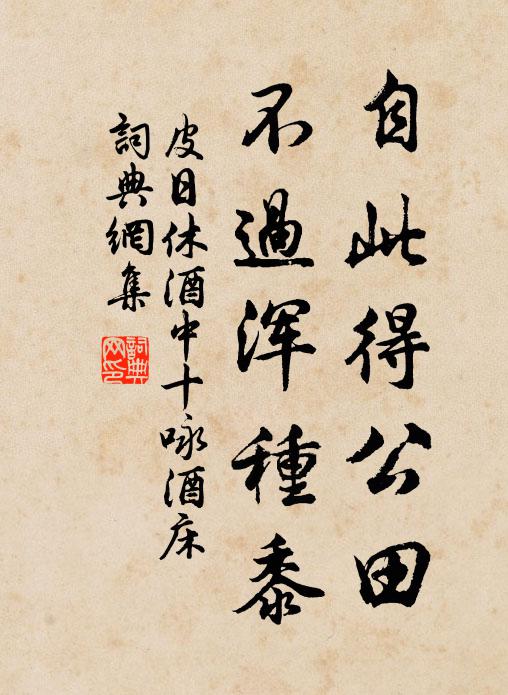 自此得公田
不過浑種黍
皮日休酒中十咏酒床
詞典網集
詞典網印